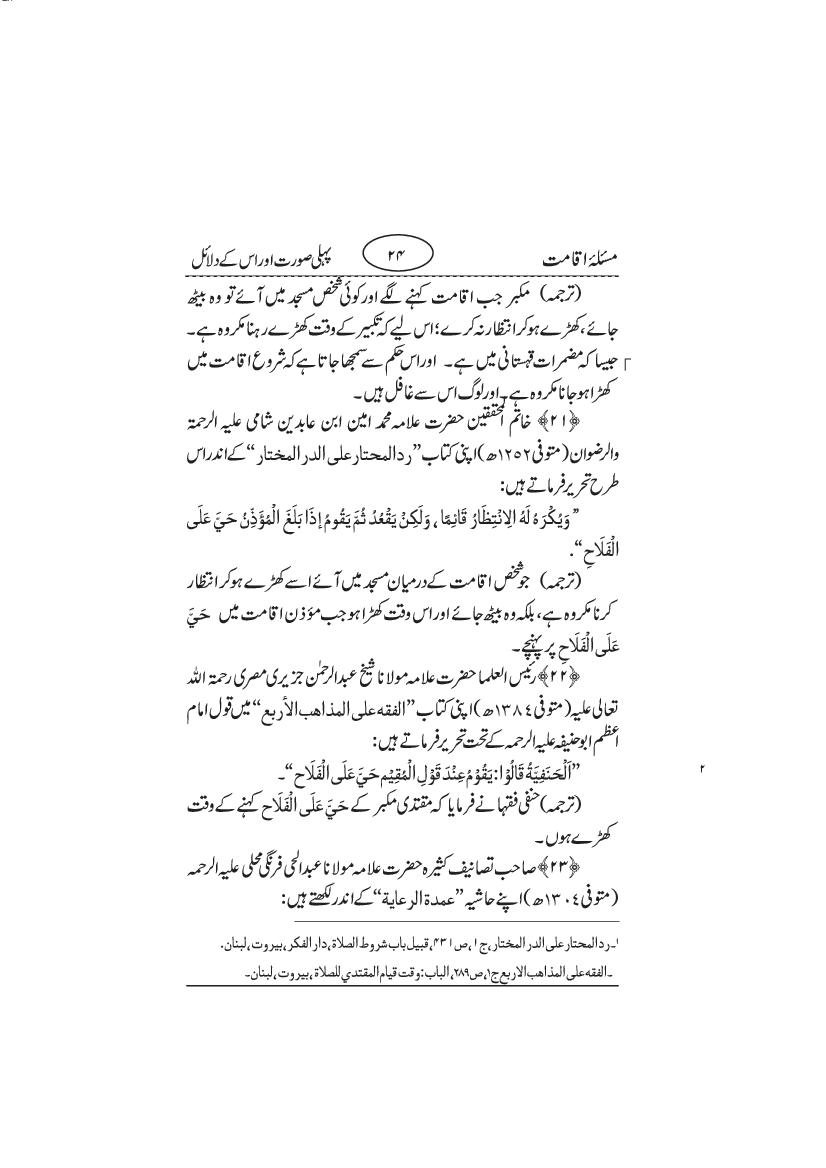 مسئلۂ اقامت ۲۴ پہلی صورت اور اس کے دلائل
(ترجمہ) مکبر جب اقامت کہنے لگے اور کوئی شخص مسجد میں آئے تو وہ بیٹھ
جائے، کھڑے ہوکر انتظار نہ کرے؛ اس لیے کہ تکبیر کے وقت کھڑے رہنا مکروہ ہے۔
جیسا کہ مضمرات قہستانی میں ہے۔ اور اس حکم سے سمجھا جاتا ہے کہ شروع اقامت میں
کھڑا ہوجانا مکروہ ہے۔ اور لوگ اس سے غافل ہیں۔
﴿۲۱﴾ خاتم المحققین حضرت علامہ محمد امین ابن عابدین شامی علیہ الرحمۃ
والرضوان (متوفی ۱۲۵۲ھ) اپنی کتاب ”ردالمحتار علی الدر المختار“ کے اندر اس
طرح تحریر فرماتے ہیں:
”وَيُكْرَهُ لَهُ الِانْتِظَارُ قَائِمًا، وَلَكِنْ يَقْعُدُ ثُمَّ يَقُومُ إذَا بَلَغَ الْمُؤَذِّنُ حَيَّ عَلَى
الْفَلَاحِ“.
(ترجمہ) جو شخص اقامت کے درمیان مسجد میں آئے اسے کھڑے ہوکر انتظار
کرنا مکروہ ہے، بلکہ وہ بیٹھ جائے اور اس وقت کھڑا ہو جب مؤذن اقامت میں حَيَّ
عَلَى الْفَلَاحِ پر پہنچے۔
﴿۲۲﴾ رئیس العلما حضرت علامہ مولانا شیخ عبدالرحمٰن جزیری مصری رحمۃ اللہ
تعالی علیہ (متوفی ۱۳۸۴ھ) اپنی کتاب ”الفقه على المذاهب الأربع“ میں قول امام
اعظم ابوحنیفہ علیہ الرحمہ کے تحت تحریر فرماتے ہیں:
”اَلْحَنَفِيَّةُ قَالُوْا: يَقُوْمُ عِنْدَ قَوْلِ الْمُقِيْمِ حَيَّ عَلَى الْفَلَاح“۔
۲
(ترجمہ) حنفی فقہا نے فرمایا کہ مقتدی مکبر کے حَيَّ عَلَى الْفَلَاح کہنے کے وقت
کھڑے ہوں۔
﴿۲۳﴾ صاحب تصانیف کثیرہ حضرت علامہ مولانا عبدالحی فرنگی محلی علیہ الرحمہ
(متوفی ۱۳۰۴ھ) اپنے حاشیہ ”عمدة الرعاية“ کے اندر لکھتے ہیں:
۱۔ ردالمحتار علی الدر المختار، ج۱، ص۴۳۱، قبیل باب شروط الصلاة، دار الفکر، بیروت، لبنان.
۔الفقه علی المذاهب الاربع ج۱، ص۲۸۹، الباب: وقت قيام المقتدي للصلاة، بیروت، لبنان۔